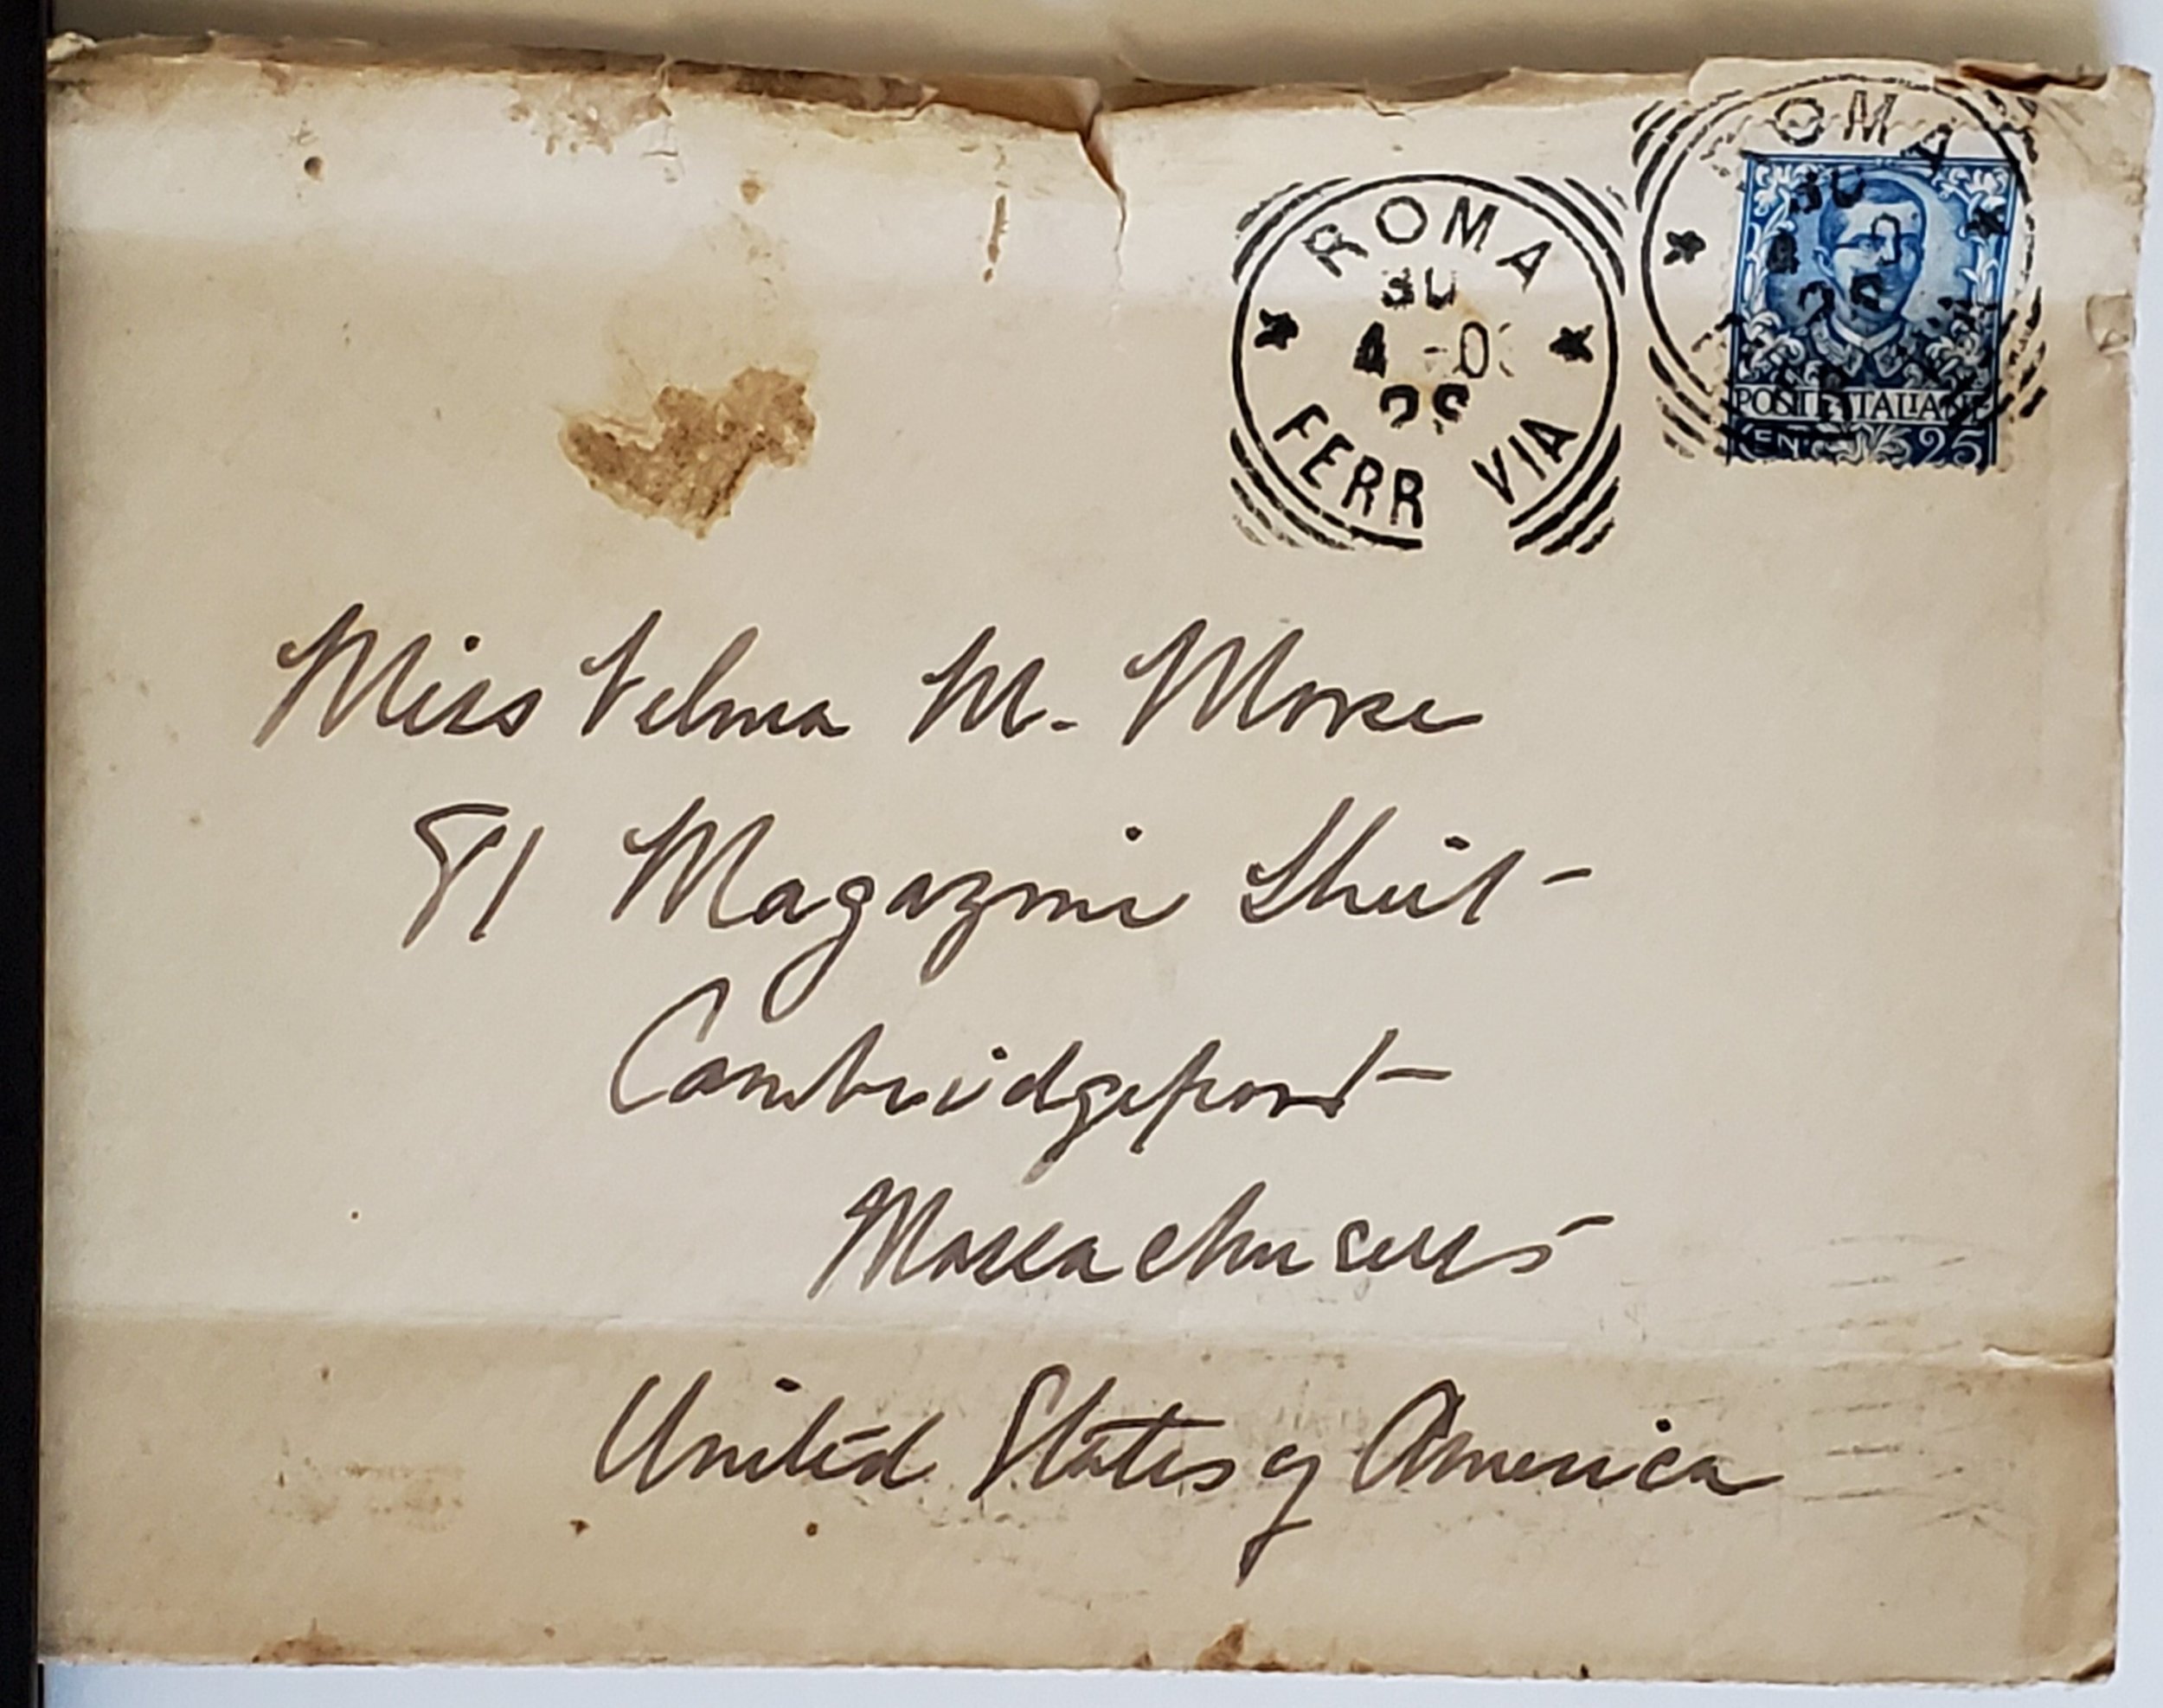 ROMA
30
4 -0
FERR VIA
OMA
30
4
POSTE ITALIANE
CENT. 25
Miss Velma M. Morse
81 Magazine Street
Cambridgeport
Massachusetts
United States of America